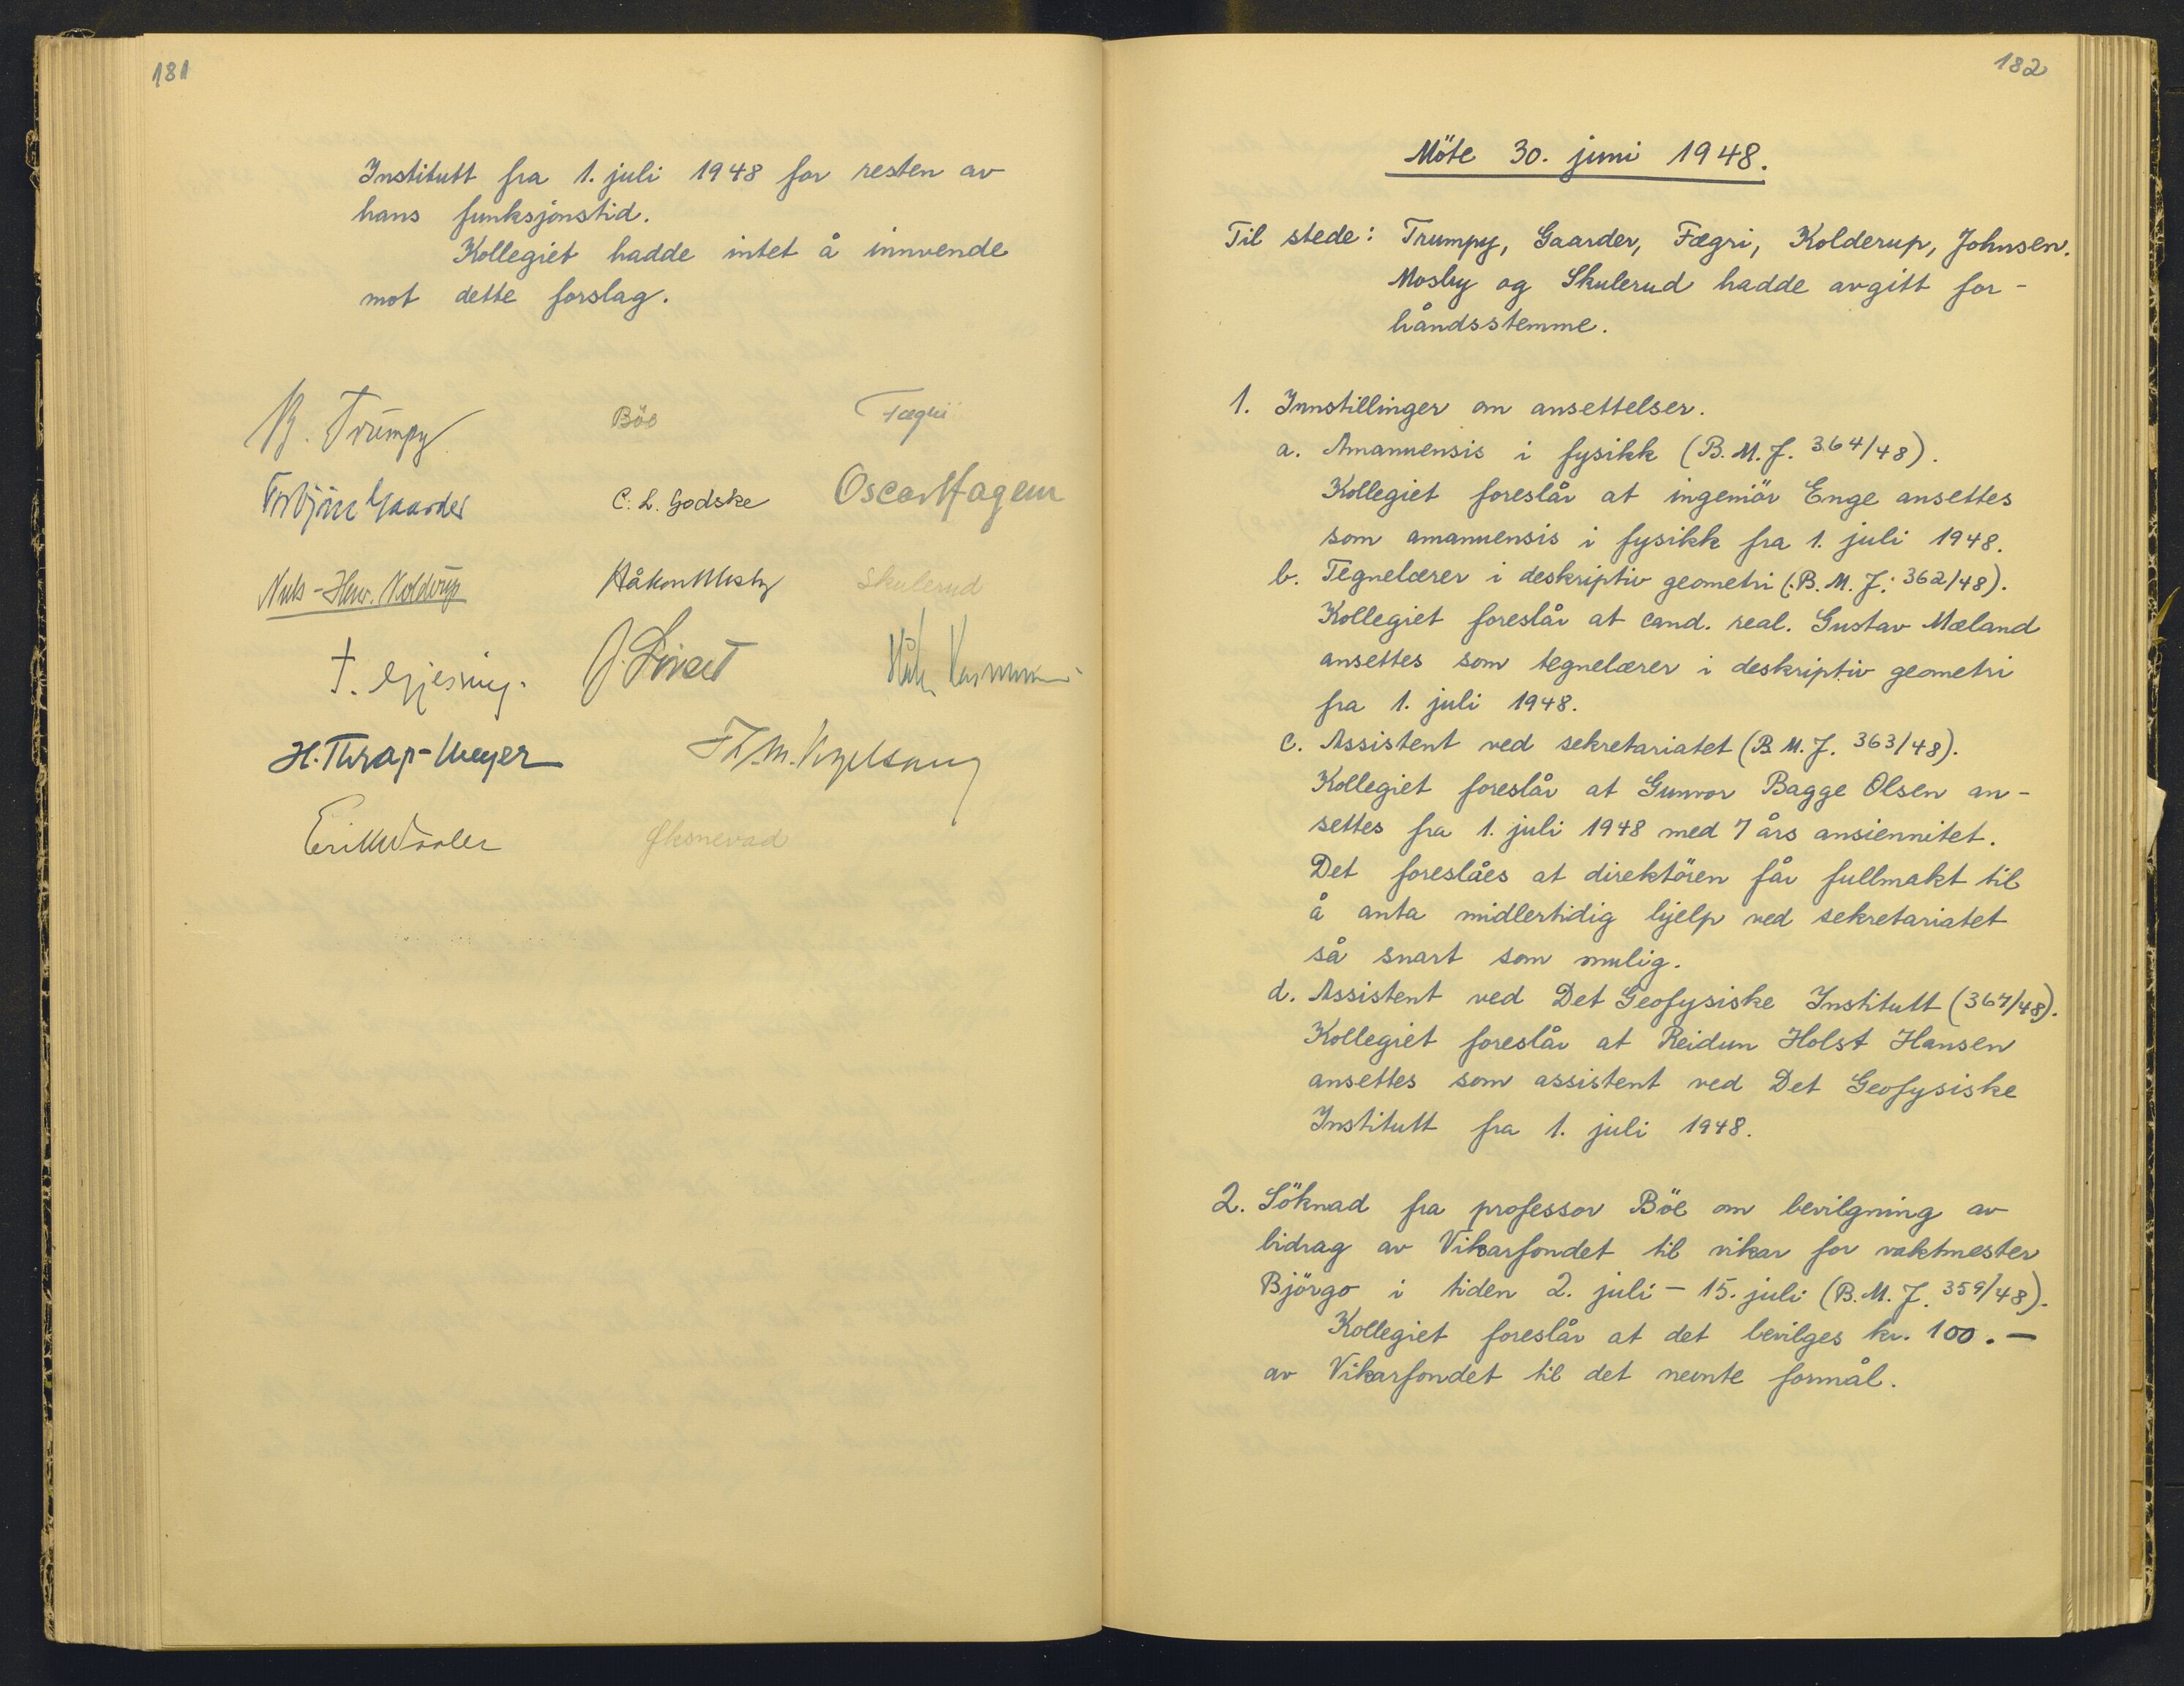 181
Institutt fra 1. juli 1948 for resten av
hans funksjonstid.
Kollegiet hadde intet å innvende
mot dette forslag.
B. Trumpy Böe Fægri
Torbjörn Gaarder C. L. Godske Oscar Hagem
Niels-Henr. Kolderup Håkon Mosby Skulerud
T. Gjesing.
H. Thrap-Meyer
Erik Waaler Øksnevad
182
Möte 30. juni 1948.
Til stede: Trumpy, Gaarder, Fægri, Kolderup, Johnsen.
Mosby og Skulerud hadde avgitt for-
håndsstemme.
1. Innstillinger om ansettelser.
a. Amanuensis i fysikk (B. M. J. 364/48).
Kollegiet foreslår at ingeniör Enge ansettes
som amanuensis i fysikk fra 1. juli 1948.
b. Tegnelærer i deskriptiv geometri (B. M. J. 362/48).
Kollegiet foreslår at cand. real. Gustav Mæland
ansettes som tegnelærer i deskriptiv geometri
fra 1. juli 1948.
c. Assistent ved sekretariatet (B. M. J. 363/48).
Kollegiet foreslår at Gunvor Bagge Olsen an-
settes fra 1. juli 1948 med 7 års ansiennitet.
Det foreslåes at direktören får fullmakt til
å anta midlertidig hjelp ved sekretariatet
så snart som mulig.
d. Assistent ved Det Geofysiske Institutt (367/48).
Kollegiet foreslår at Reidun Holst Hansen
ansettes som assistent ved Det Geofysiske
Institutt fra 1. juli 1948.
2. Söknad fra professor Böe om bevilgning av
bidrag av Vikarfondet til vikar for vaktmester
Björgo i tiden 2. juli - 15. juli (B. M. J. 359/48).
Kollegiet foreslår at det bevilges kr. 100.-
av Vikarfondet til det nevnte formål.